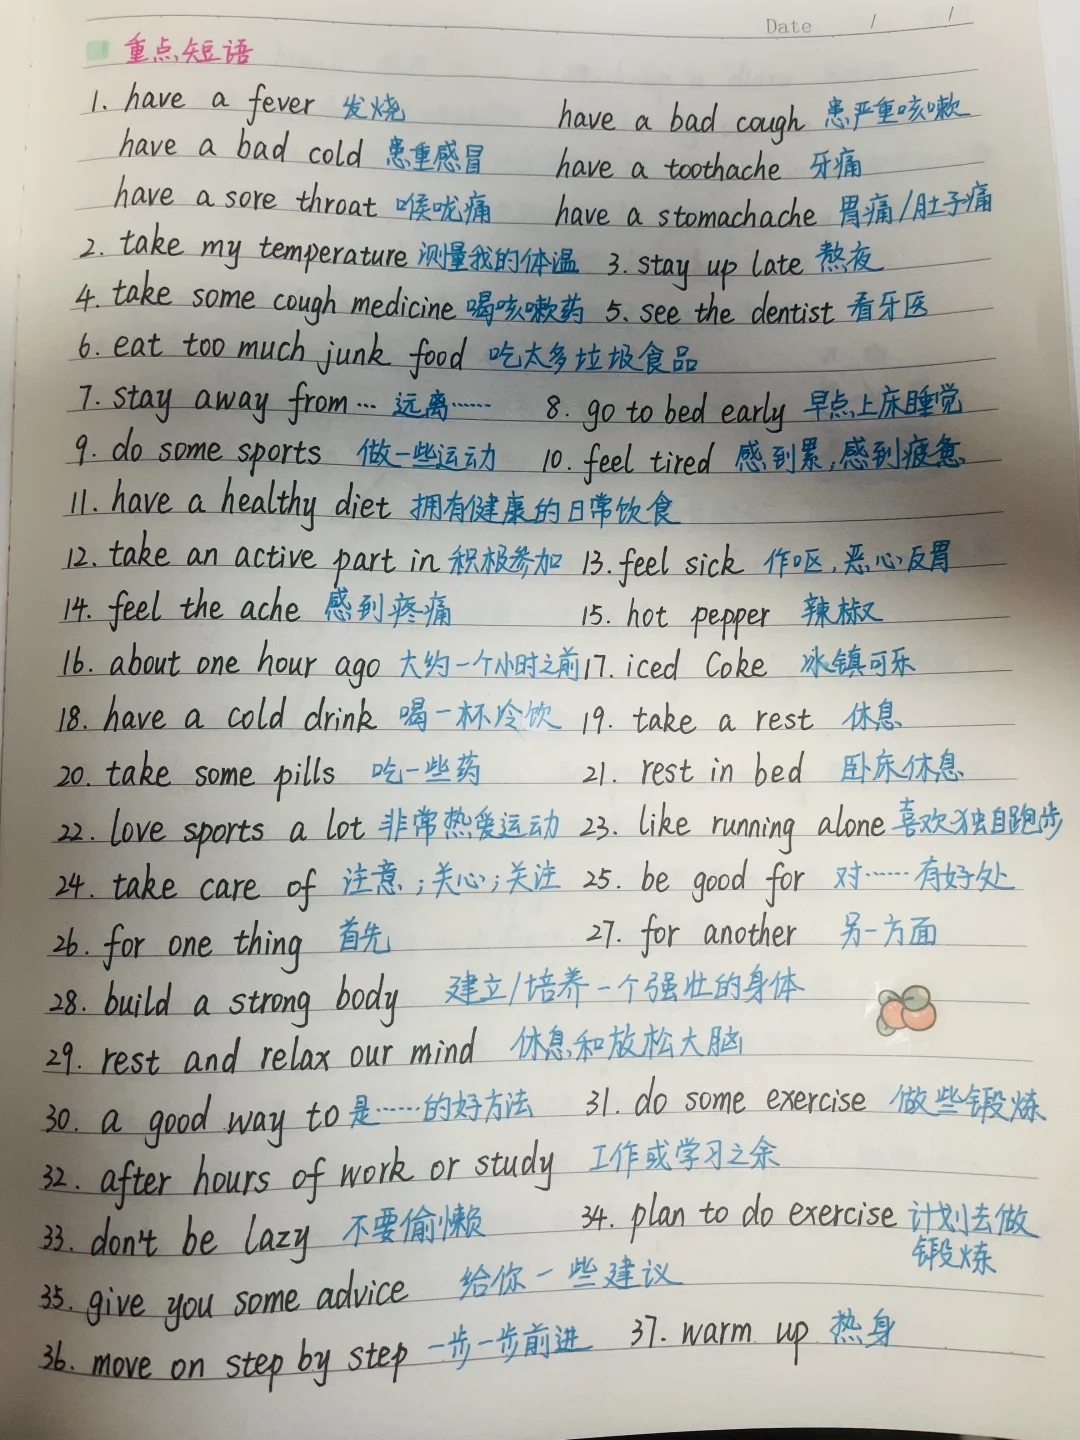 Date / /
重点短语
1. have a fever 发烧 have a bad cough 患严重咳嗽
have a bad cold 患重感冒 have a toothache 牙痛
have a sore throat 喉咙痛 have a stomachache 胃痛/肚子痛
2. take my temperature 测量我的体温 3. stay up late 熬夜
4. take some cough medicine 喝咳嗽药 5. see the dentist 看牙医
6. eat too much junk food 吃太多垃圾食品
7. stay away from… 远离…… 8. go to bed early 早点上床睡觉
9. do some sports 做一些运动 10. feel tired 感到累,感到疲惫
11. have a healthy diet 拥有健康的日常饮食
12. take an active part in 积极参加 13. feel sick 作呕,恶心反胃
14. feel the ache 感到疼痛 15. hot pepper 辣椒
16. about one hour ago 大约一个小时之前 17. iced Coke 冰镇可乐
18. have a cold drink 喝一杯冷饮 19. take a rest 休息
20. take some pills 吃一些药 21. rest in bed 卧床休息
22. love sports a lot 非常热爱运动 23. like running alone 喜欢独自跑步
24. take care of 注意;关心;关注 25. be good for 对……有好处
26. for one thing 首先 27. for another 另一方面
28. build a strong body 建立/培养一个强壮的身体
29. rest and relax our mind 休息和放松大脑
30. a good way to 是……的好方法 31. do some exercise 做些锻炼
32. after hours of work or study 工作或学习之余
33. don't be lazy 不要偷懒 34. plan to do exercise 计划去做
锻炼
35. give you some advice 给你一些建议
36. move on step by step 一步一步前进 37. warm up 热身